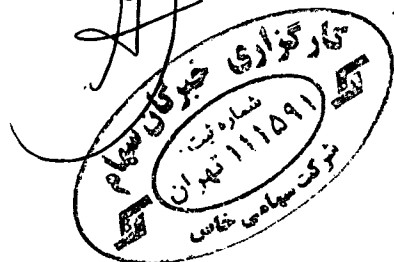 کارگزاری خبرگان سهام
شماره ثبت:
۱۱۱۵۹۱
تهران
شرکت سهامی خاص